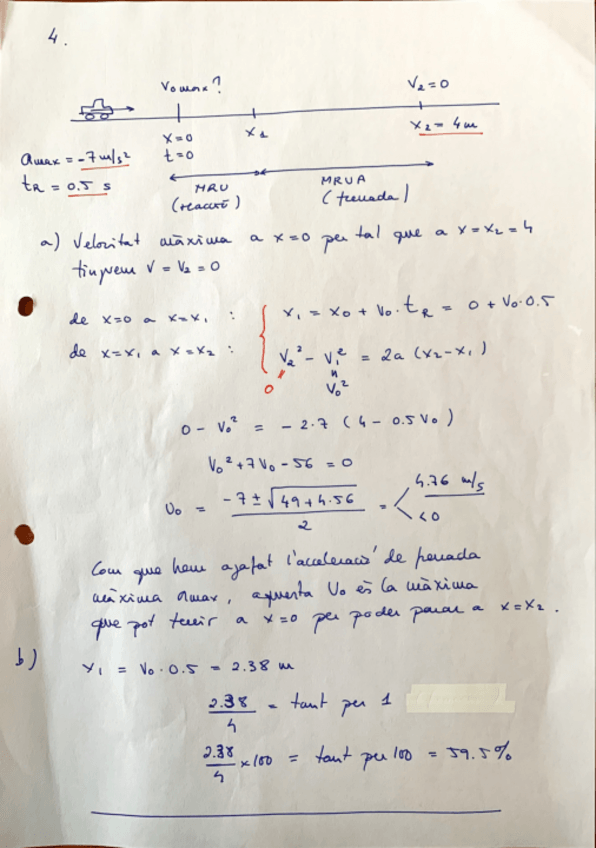 4.
V₀max?
V₂=0
x=0
t=0
x₁
x₂= 4m
amax = -7 m/s²
tR = 0.5 s
MRU
(reacció)
MRUA
(frenada)
a) Velocitat màxima a x=0 per tal que a x=x₂=4
tinguem V = V₂ = 0
de x=0 a x=x₁ : x₁ = x₀ + V₀·tR = 0 + V₀·0.5
de x=x₁ a x=x₂ : V₂² - V₁² = 2a (x₂-x₁)
0
"
V₀²
0 - V₀² = -2·7 (4 - 0.5V₀)
V₀²+7V₀-56 = 0
V₀ = (-7±√(49+4·56))/2 = < 4.76 m/s
<0
Com que hem agafat l'acceleració de frenada
màxima amax, aquesta V₀ és la màxima
que pot tenir a x=0 per poder parar a x=x₂.
b) x₁ = V₀·0.5 = 2.38 m
2.38/4 = tant per 1
2.38/4 ×100 = tant per 100 = 59.5%